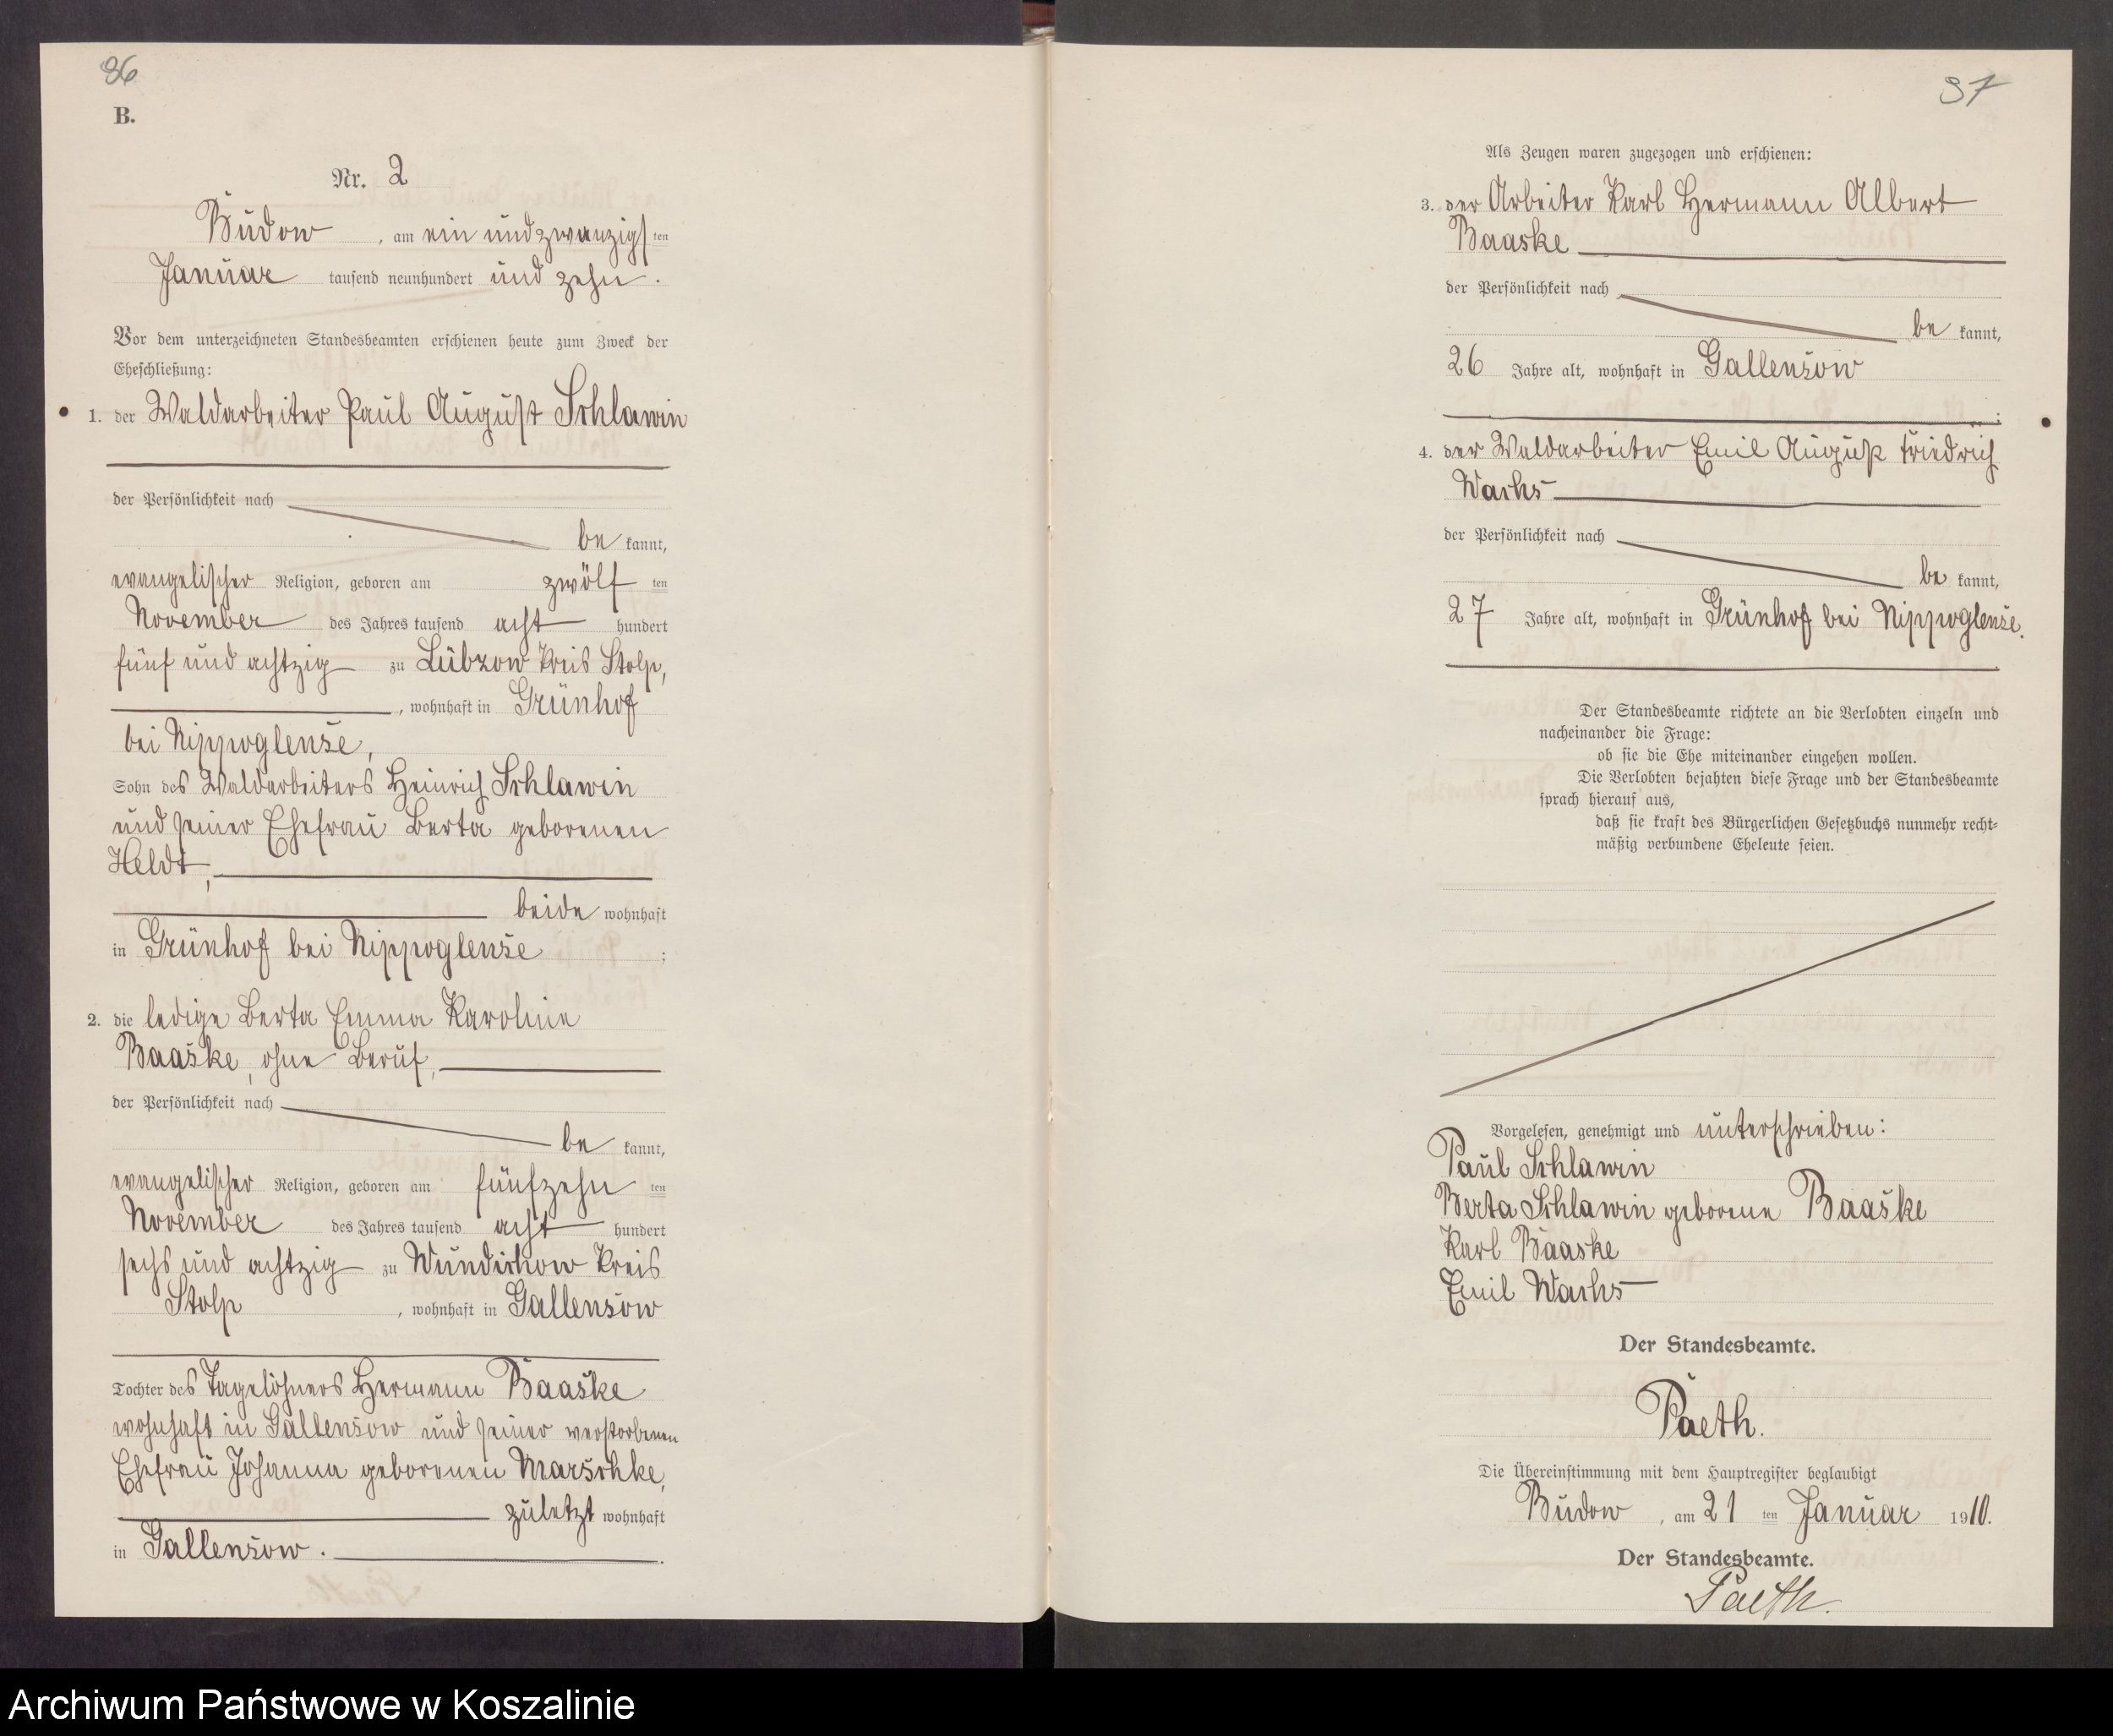 86
B.
Nr. 2
Budow, am ein und zwanzigsten
Januar tausend neunhundert und zehn.
Vor dem unterzeichneten Standesbeamten erschienen heute zum Zweck der
Eheschließung:
1. der Waldarbeiter Paul August Schlawin
der Persönlichkeit nach
be kannt,
evangelischer Religion, geboren am zwölf ten
November des Jahres tausend acht hundert
fünf und achtzig zu Lübzow Kreis Stolp,
, wohnhaft in Grünhof
bei Nippoglense,
Sohn des Waldarbeiters Heinrich Schlawin
und seiner Ehefrau Berta geborenen
Heldt,
beide wohnhaft
in Grünhof bei Nippoglense ;
2. die ledige Berta Emma Karoline
Baaske, ohne Beruf,
der Persönlichkeit nach
be kannt,
evangelischer Religion, geboren am fünfzehn ten
November des Jahres tausend acht hundert
sechs und achtzig zu Wundichow Kreis
Stolp, wohnhaft in Gallensow
Tochter des Tagelöhners Hermann Baaske
wohnhaft in Gallensow und seiner verstorbenen
Ehefrau Johanna geborenen Marschke,
zuletzt wohnhaft
in Gallensow.
37
Als Zeugen waren zugezogen und erschienen:
3. der Arbeiter Karl Hermann Albert
Baaske
der Persönlichkeit nach
be kannt,
26 Jahre alt, wohnhaft in Gallensow
;
4. der Waldarbeiter Emil August Friedrich
Wachs
der Persönlichkeit nach
be kannt,
27 Jahre alt, wohnhaft in Grünhof bei Nippoglense.
Der Standesbeamte richtete an die Verlobten einzeln und
nacheinander die Frage:
ob sie die Ehe miteinander eingehen wollen.
Die Verlobten bejahten diese Frage und der Standesbeamte
sprach hierauf aus,
daß sie kraft des Bürgerlichen Gesetzbuchs nunmehr recht-
mäßig verbundene Eheleute seien.
Vorgelesen, genehmigt und unterschrieben:
Paul Schlawin
Berta Schlawin geborene Baaske
Karl Baaske
Emil Wachs
Der Standesbeamte.
Paeth.
Die Übereinstimmung mit dem Hauptregister beglaubigt
Budow, am 21 ten Januar 1910.
Der Standesbeamte.
Paeth.
Archiwum Państwowe w Koszalinie